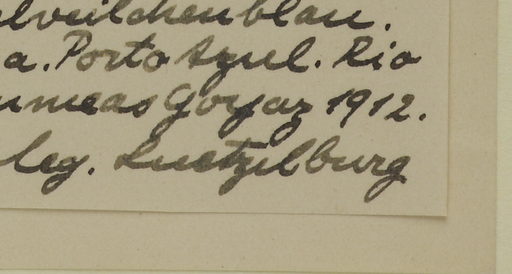 elveilchenblau.
a. Porto Azul. Rio
umeas Goyaz 1912.
leg. Luetzelburg